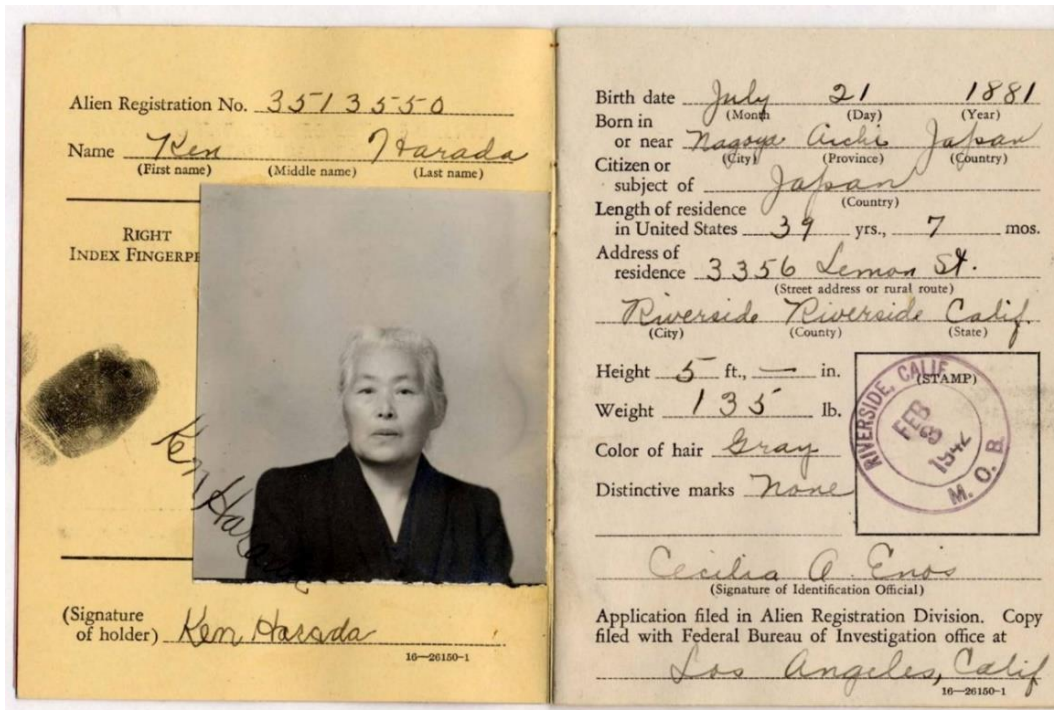 Alien Registration No. 3513550
Name Ken Harada
(First name) (Middle name) (Last name)
RIGHT
INDEX FINGERP
Ken Hara
(Signature
of holder) Ken Harada
16—26150-1
Birth date July 21 1881
(Month (Day) (Year)
Born in
or near Nagoya Aichi Japan
(City) (Province) (Country)
Citizen or
subject of Japan
(Country)
Length of residence
in United States 39 yrs., 7 mos.
Address of
residence 3356 Lemon St.
(Street address or rural route)
Riverside Riverside Calif.
(City) (County) (State)
Height 5 ft., — in.
Weight 135 lb.
Color of hair Gray
Distinctive marks None
(STAMP)
RIVERSIDE, CALIF
FEB
1942
M. O. B.
Cecilia A. Enos
(Signature of Identification Official)
Application filed in Alien Registration Division. Copy
filed with Federal Bureau of Investigation office at
Los Angeles, Calif
16—26150-1